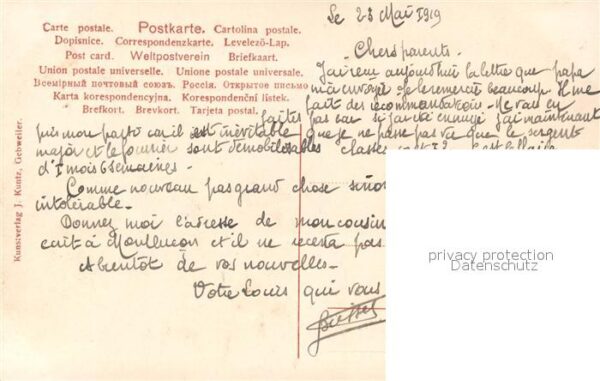 Carte postale. Postkarte. Cartolina postale.
Dopisnice. Correspondenzkarte. Levelező-Lap.
Post card. Weltpostverein Briefkaart.
Union postale universelle. Unione postale universale.
Всемірный почтовый союзъ. Россія. Открытое письмо
Karta korespondencyjna. Korespondenční listek.
Brefkort. Brevkort. Tarjeta postal.
Kunstverlag J. Kuntz, Gebweiler.
Le 23 Mai 1919
Chers parents.
J'ai reçu aujourd'hui la lettre que papa
m'a envoyé je le remercie beaucoup Il me
fait des recommandation. Ne vous en
faites pas car si j'ai été ennuyé j'ai maintenant
pris mon parti car il est inévitable que je ne passe pas vu que le sergent
major et le fourrier sont démobilisables classe
d'I mois 6 semaines.
Comme nouveau pas grand chose sinon
intolérable.
Donnez moi l'adresse de mon cousin
écrit à Montluçon et il ne pas
A bientôt de vos nouvelles.
Votre Louis qui vous
privacy protection
Datenschutz